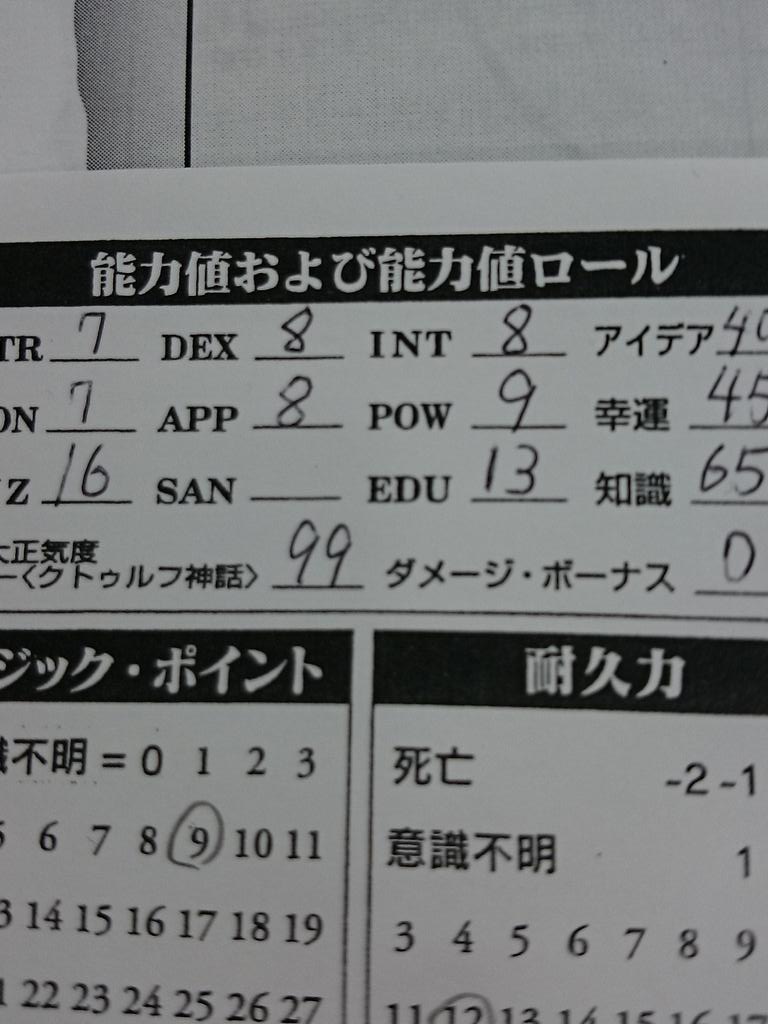 能力値および能力値ロール
TR 7 DEX 8 INT 8 アイデア 40
ON 7 APP 8 POW 9 幸運 45
Z 16 SAN EDU 13 知識 65
大正気度
ー〈クトゥルフ神話〉 99 ダメージ・ボーナス 0
ジック・ポイント
識不明 = 0 1 2 3
5 6 7 8 9 10 11
3 14 15 16 17 18 19
1 22 23 24 25 26 27
耐久力
死亡 -2 -1
意識不明 1
3 4 5 6 7 8 9
11 12 13 14 15 16 17